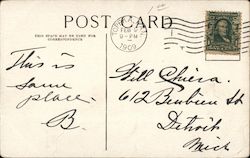 POST CARD
THIS SPACE MAY BE USED FOR
CORRESPONDENCE
FEB
9-PM
1909
This is
same
place.
B.
Will
612 Beubien St
Detroit
Mich